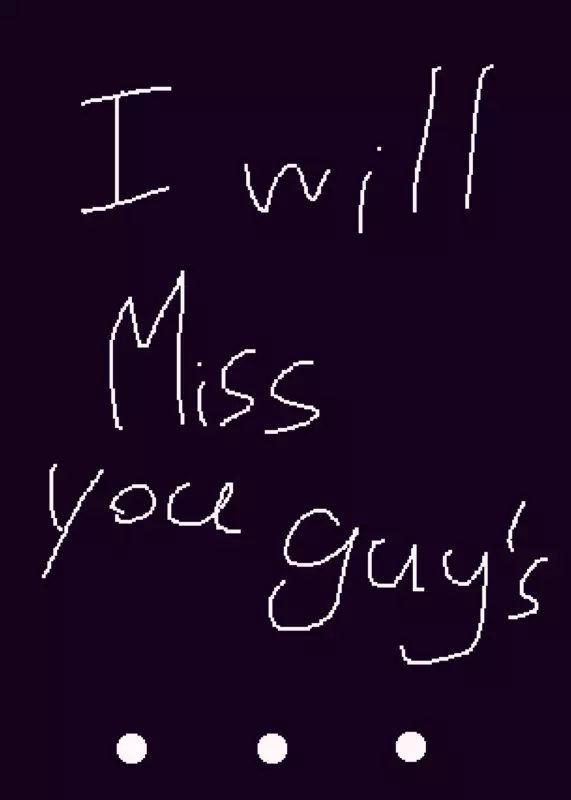 I will
Miss
you guy's
...